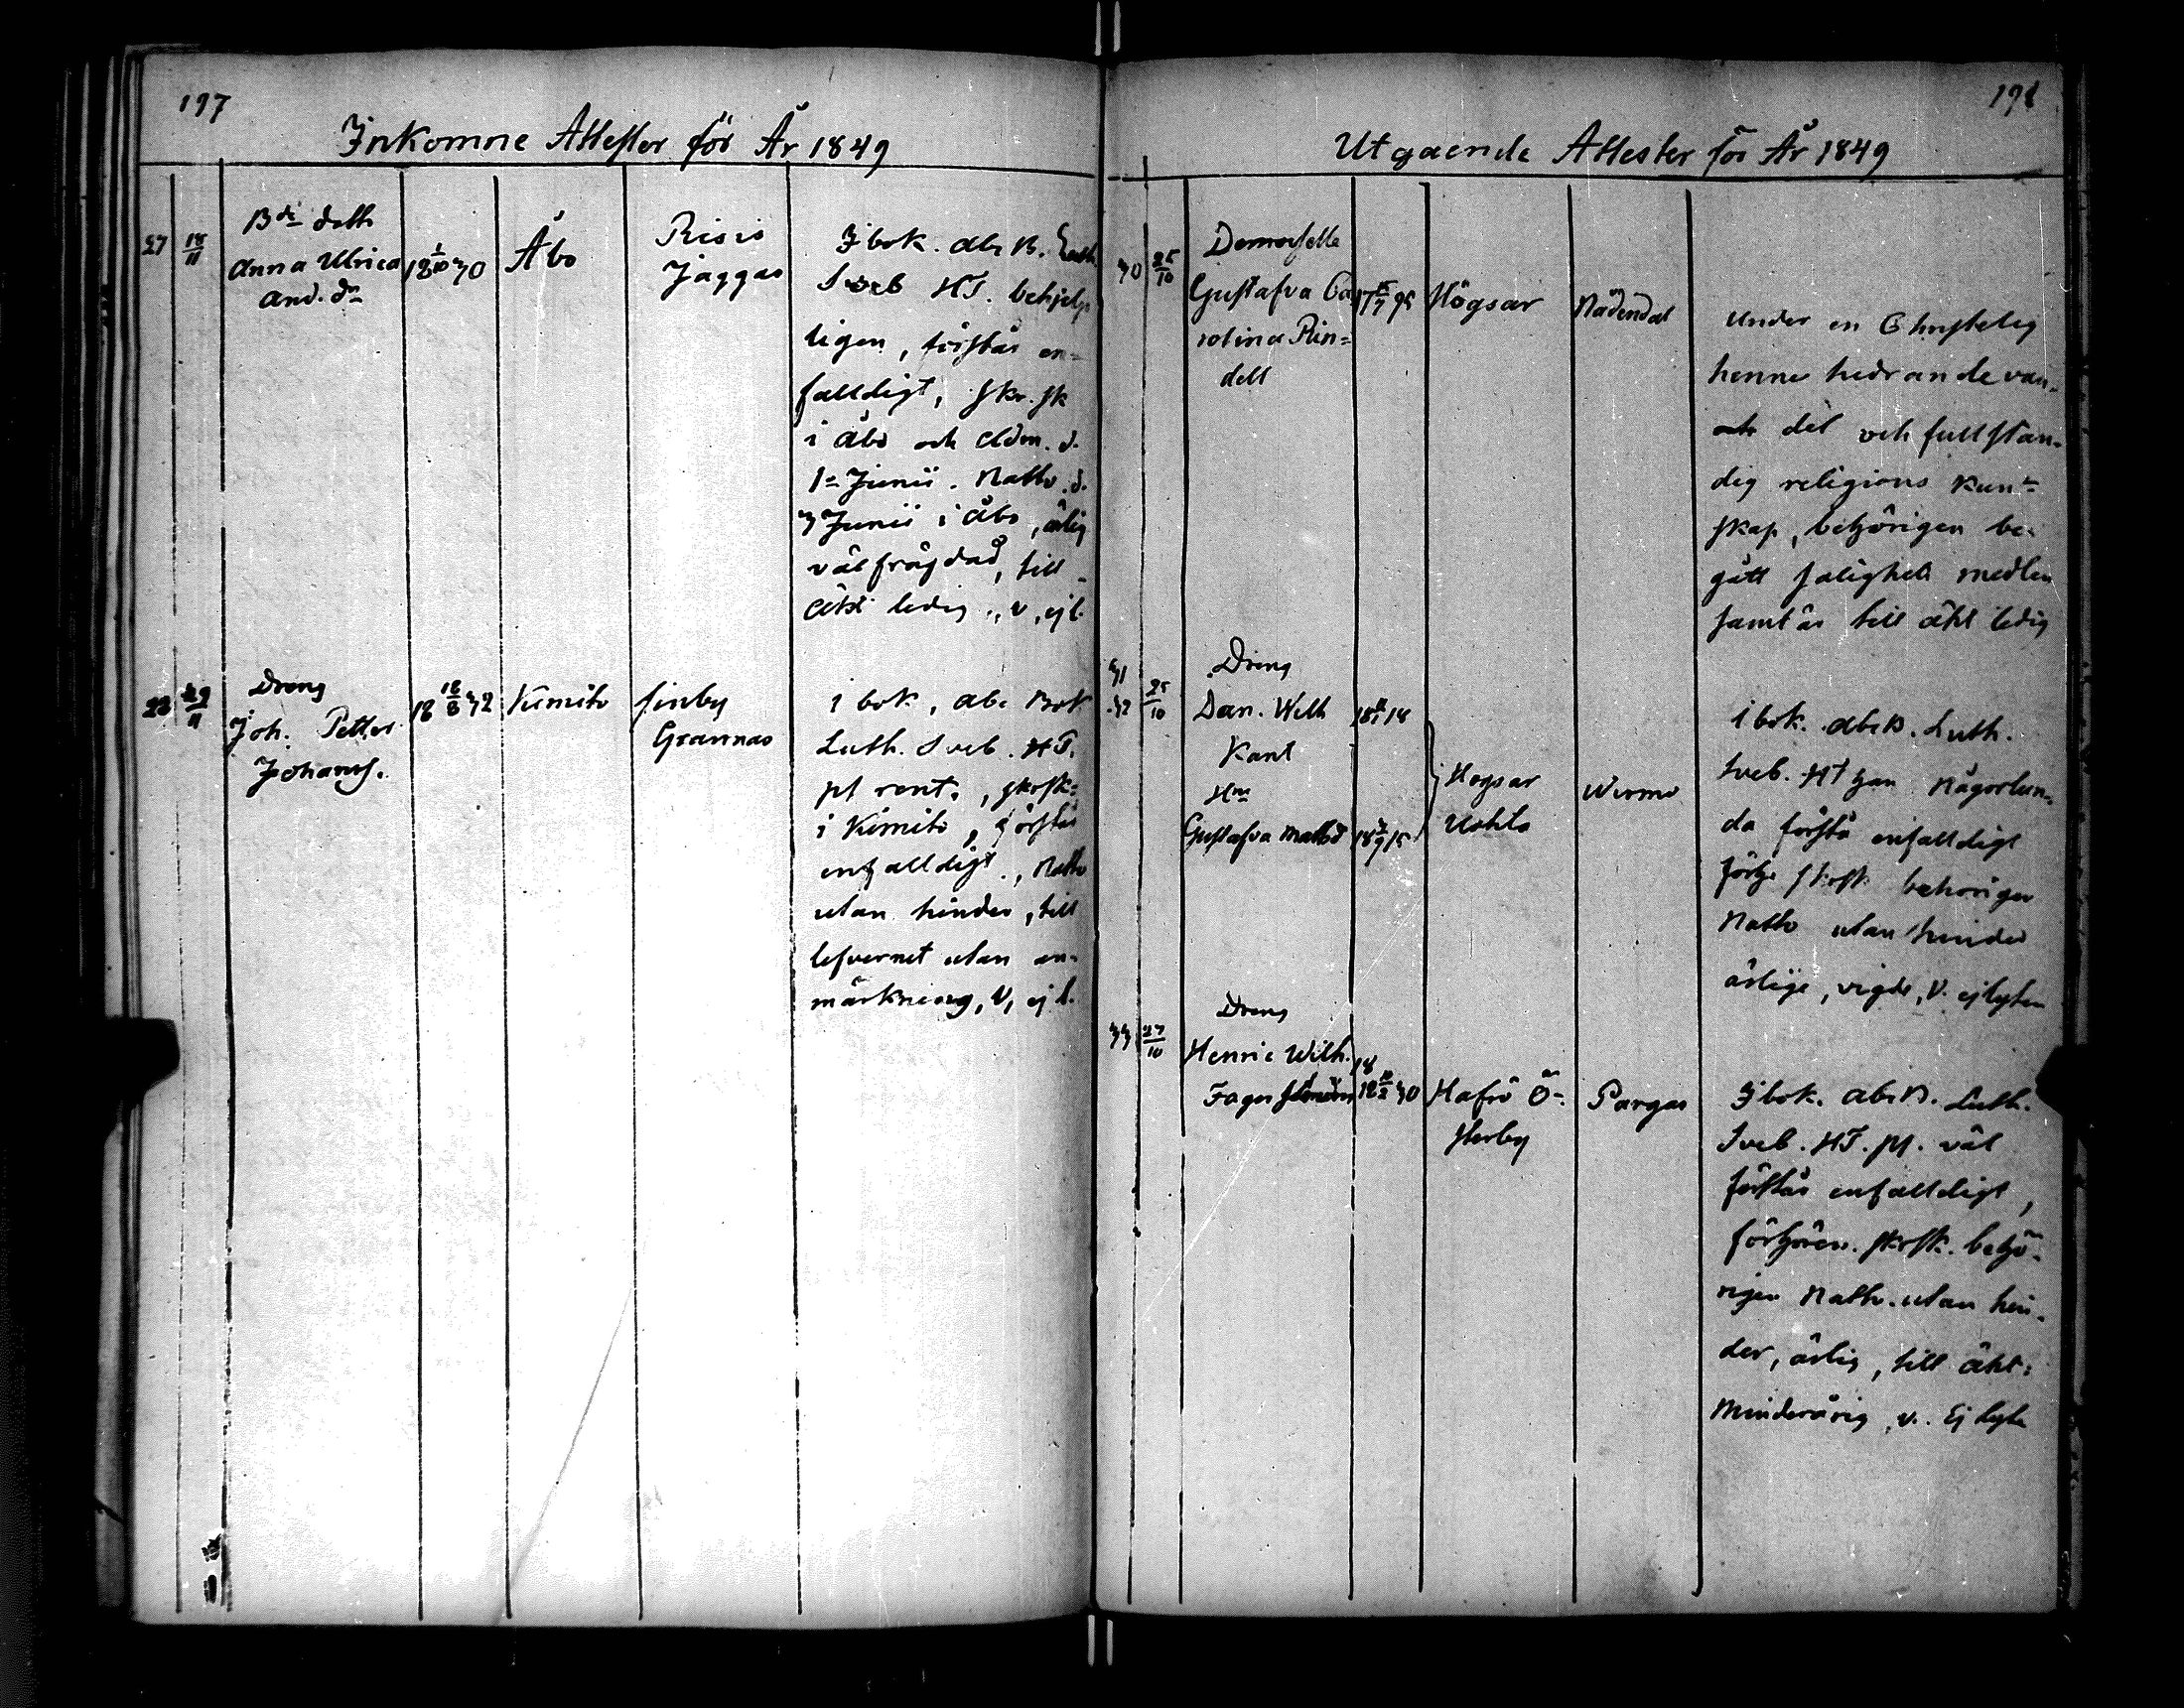 197
Inkomne Attester för År 1849
27 18/11
Bde dottr
Anna Ulrica
And. dr
18 1/10 30
Åbo
Risis
Jaggas
I bok. Abc B. Luth.
Sveb HT. behjelp
ligen, förstår en=
falldigt, skr. sk
i Åbo och Adm. d.
1a Junii. Nattv. d.
3 Junii i Åbo, ärlig
väl fräjdad, till
äkt ledig, v, ej l.
28 29/11
Dreng
Joh. Petter
Johanss.
18 18/8 32
Kimito
finby
Grannas
i bok, abc Bok
Luth. Sveb. HT.
pl rent, skrsk:
i Kimito, förstår
enfalldigt, Nattv
utan hinder, till
lefvernet utan an-
märkning, V, ej l.
198
Utgaende Attester för År 1849
30 25/10
Demoiselle
Gustafva Ca
rolina Rin=
dell
17 15/7 95
Högsar
Nådendal
Under en Christelig
henne hedrande van-
del och fullstän-
dig religions kun-
skap, behörigen be-
gått salighets medlen
samt är till äkt ledig
31
32 25/10
Dreng
Dan. Wilh
Kant
Hm
Gustafva Mattsd
18 18
18 9 15
Hogsar
Uohls
Wirmo
i bok. abc B. Luth.
Sveb. HT gan någorlun-
da förstå enfalldigt
förhr skrsk behörigen
Nattv utan hinder
ärlige, vigde, V. ej lyten
33 27/10
Dreng
Henric Wilh.
Fager
18
18 2 30
Hafrö Ö-
sterby
Pargas
I bok. Abc B. Luth.
Sveb. HT. pl. väl
förstår enfalldigt,
förhören. skrsk. behö-
rigen Nattv. utan hin-
der, ärlig, till äkt:
Minderårig, v. Ej lyte